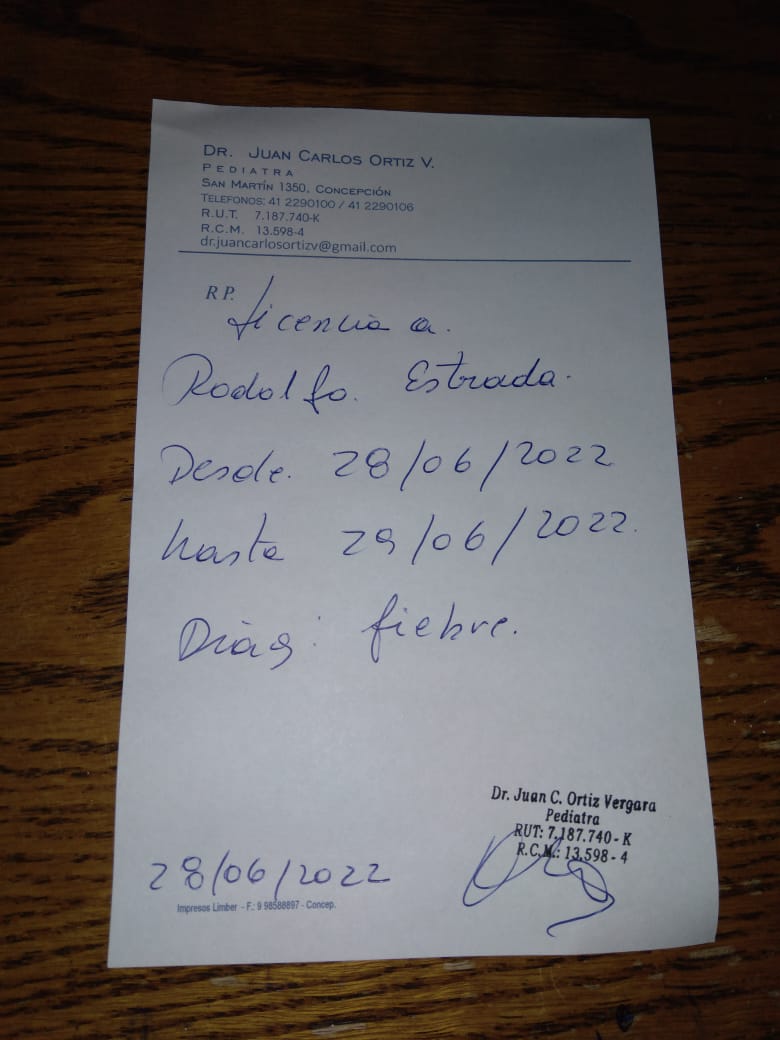 DR. JUAN CARLOS ORTIZ V.
PEDIATRA
SAN MARTÍN 1350, CONCEPCIÓN
TELEFONOS: 41 2290100 / 41 2290106
R.U.T. 7.187.740-K
R.C.M. 13.598-4
dr.juancarlosortizv@gmail.com
RP.
Licencia a.
Rodolfo. Estrada.
Desde. 28/06/2022
hasta 29/06/2022.
Diag: fiebre.
Dr. Juan C. Ortiz Vergara
Pediatra
RUT: 7.187.740-K
R.C.M.: 13.598-4
28/06/2022
Impresos Limber - F.: 9 98588897 - Concep.